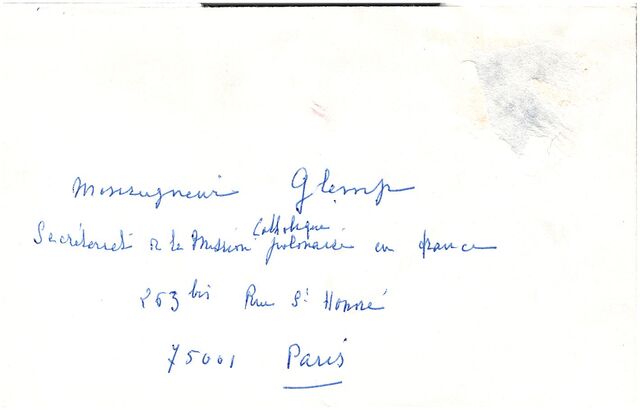 Monseigneur Glemp
Secrétariat de la Mission Catholique polonaise en france
263 bis Rue St Honoré
75001 Paris